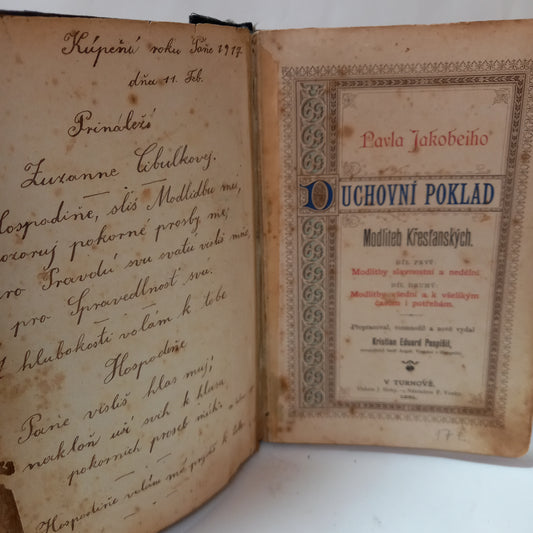 Kúpeňú roku Páňe 1917
dňa 11. Feb.
Prináleží
Zuzanne Cibulkovy.
Hospodiňe, slíš Modlidbu mú,
pozoruj pokorné prosby mé,
pro Pravdú svu svatú vislíš mňe,
pro Spravedlnosť svú.
hlubokosti volám k tobe
Hospodiňe
Páňe vislíš hlas muj,
nakloň uší svích k hlasu,
pokorních proseb mích
Hospodiňe volám
Pavla Jakobeiho
DUCHOVNÍ POKLAD
Modliteb Křesťanských.
DÍL PRVÝ:
Modlitby slavnostní a nedělní.
DÍL DRUHÝ:
Modlitby všední a k všelikým
časům i potřebám.
Popravoval, rozmnožil a nově vydal
Kristian Eduard Pospíšil,
V TURNOVĚ.
17 €